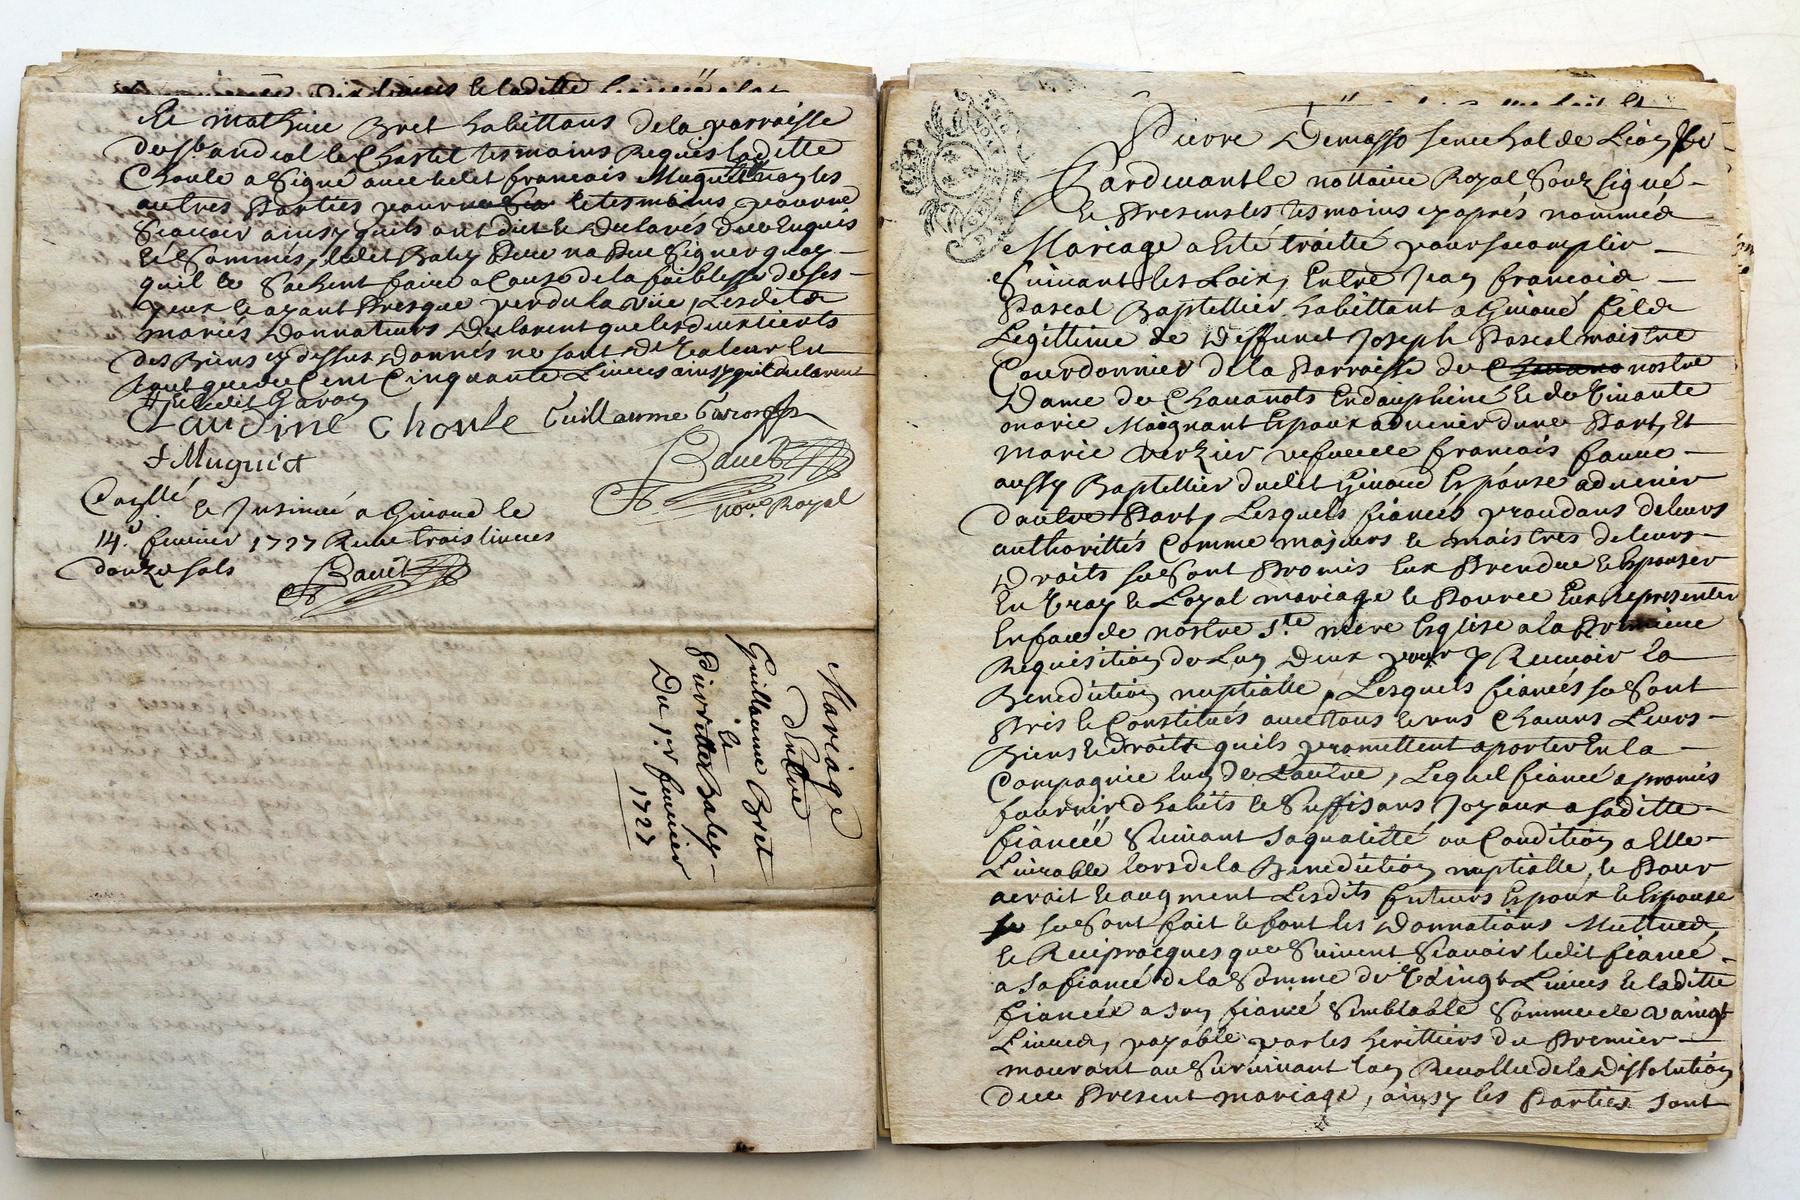 et mathieu Bret habittans de la parroisse
de st. andeol le Chastel tesmoins Requis laditte
Choule a signé avec ledit francois Muguet non les
autres Parties ne le tesmoins pour ne
scavoir ainsy quils ont dit et declarés de ce Enquis
Et Sommés, ledit Baley Pere na Peu Signer quoy
quil le Sachent faire a Cause de la foiblesse de ses
yeux et ayant Presque perdu la vüe, Lesdits
mariés Donnateurs Declarent que les deux tierts
des Biens cy dessus donnés ne sont De Valeur En
tout que de Cent Cinquante Livres ainsy quil declarent
Claudine Choule Guillaume
f Muguet
Bauet
nore. Royal
Conllé et Insinué a Givord le
14e. fevrier 1727 Receu trois livres
douze sols
Bauet
Mariage
D'Entre
Guillaume Bret
Et
Pierrette Baley
Du 1er fevrier
1727
Pierre Demasso senechal de Lion
Pardevant le nottaire Royal Souz signé
Et Presens les tesmoins cy aprés nommés
Mariage a Eté traitté pour sacomplir
Suivant les Loix, Entre Jean francois
Pascal Baptellier habittant a Givord fils
Legittime de Deffunct Joseph Pascal maistre
Courdonnier de la Parroisse de nostre
Dame de Chavanots En dauphiné Et de Vivante
marie Moignant Epoux advenir d'une Part, Et
marie Verzier vefve de francois favre
aussy Baptellier dudit Givord Espouse advenir
d'autre Part, Lesquels fiancés procedans de leurs
authorittés Comme majeurs et maistres de leurs
Droits se Sont Promis Eux Prendre et Epouser
En Vray et Loyal mariage et Pource Eux Representer
En face de nostre Ste. mere Esglise a la Premiere
Requisition de Lun Deux pour y Recevoir la
Benediction nuptialle, Lesquels fiancés se Sont
Pris et Constitués avec tous et uns Chacuns Leurs
Biens et droits quils promettent aporter En la
Compagnie lun de Lautre, Lequel fiancé a promis
fournir d'habits et Suffisans Joyaux a saditte
fiancée Suivant sa qualitté ou Condition a Elle
Livrable lors de la Benediction nuptialle, et Pour
acroit et augment Lesdits futeurs Epoux et Espouse
se Sont fait et font les Donnations Mutuels
et Reciprocques que Suivent Scavoir ledit fiancé
a sa fiancé de la Somme de Vaingt Livres et laditte
fiancée a son fiancé Semblable Somme de vaingt
Livres, payable par les heritiers du Premier
mourant au Survivant lan Revollu de la Dissolution
du Present mariage, ainsy les Parties sont